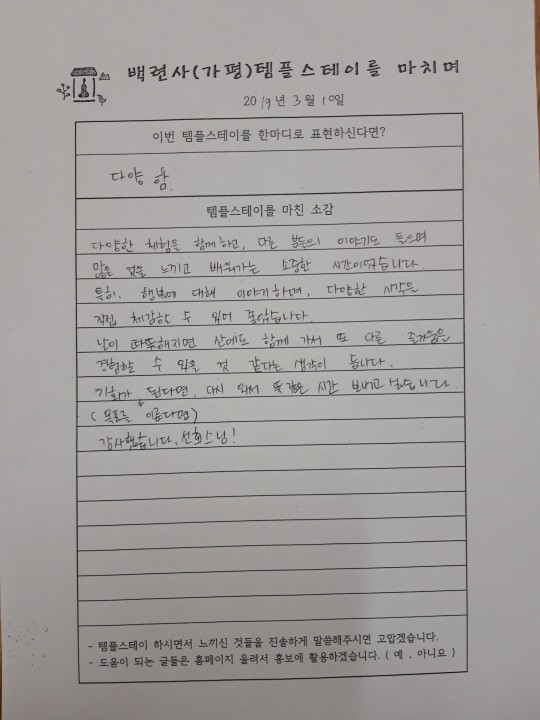 백련사(가평)템플스테이를 마치며
2019년 3월 10일
이번 템플스테이를 한마디로 표현하신다면?
다양 함
템플스테이를 마친 소감
다양한 체험을 함께하고, 다른 분들의 이야기도 들으며
많은 것을 느끼고 배워가는 소중한 시간이었습니다.
특히, 행복에 대해 이야기하며, 다양한 시각을
직접 체감할 수 있어 좋았습니다
날이 따뜻해지면 산에도 함께 가서 또 다른 즐거움을
경험할 수 있을 것 같다는 생각이 듭니다.
기회가 된다면, 다시 와서 뜻깊은 시간 보내고 싶습니다.
(목표를 이룬다면)
감사했습니다, 선희스님!
- 템플스테이 하시면서 느끼신 것들을 진솔하게 말씀해주시면 고맙겠습니다.
- 도움이 되는 글들은 홈페이지 올려서 홍보에 활용하겠습니다. ( 예 , 아니요 )